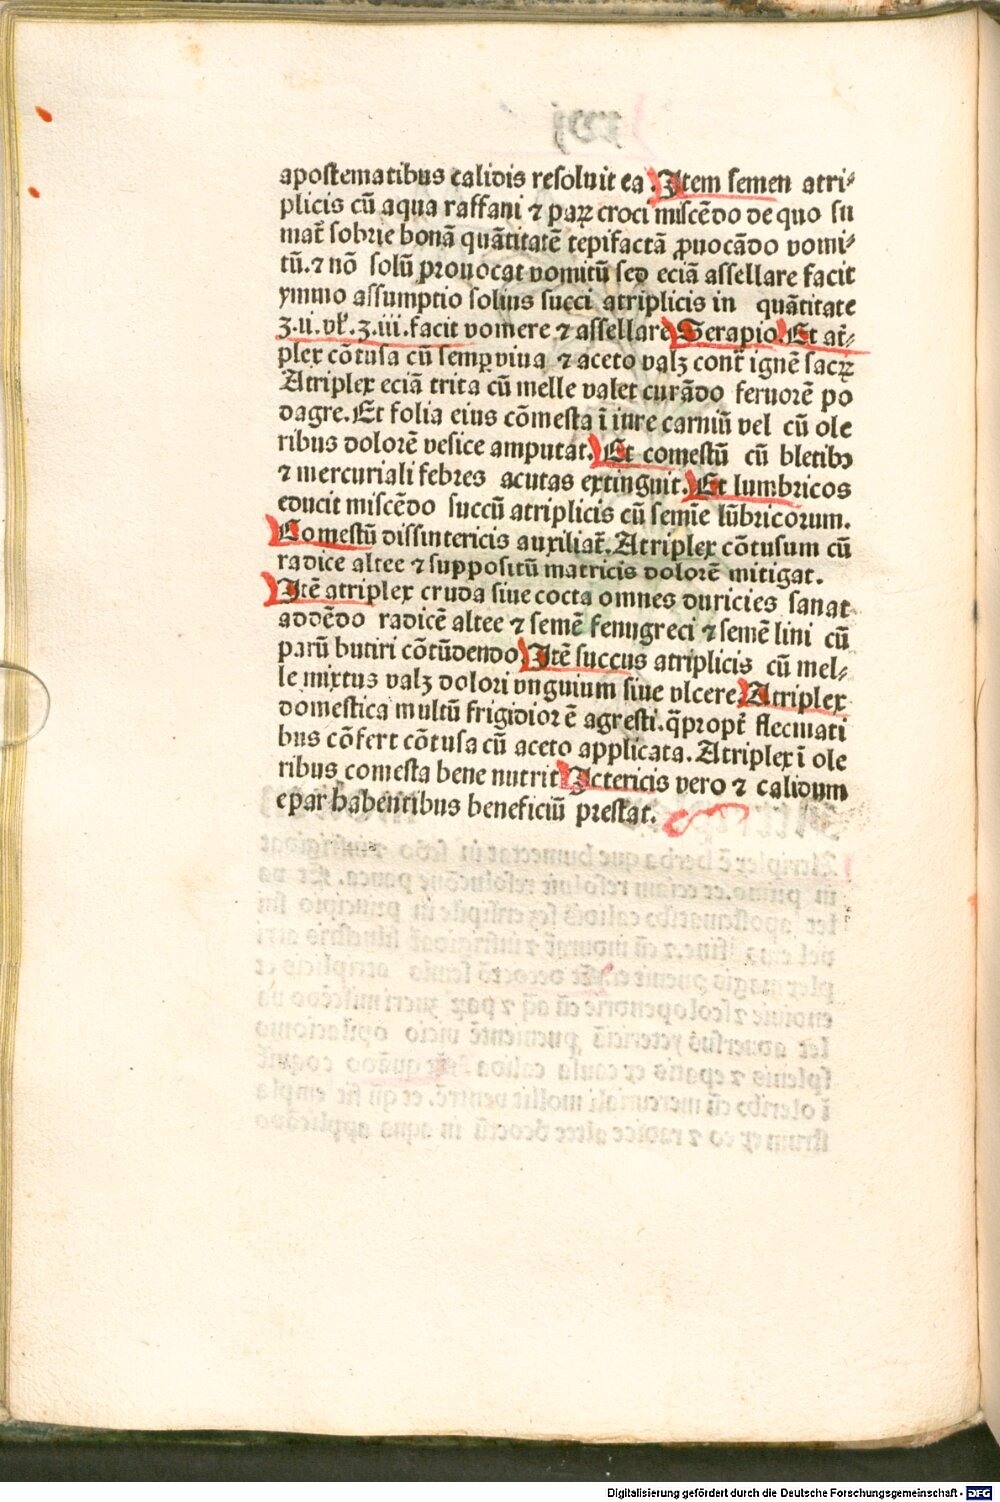 apostematibus calidis resoluit ea. Item semen atri⸗
plicis cū aqua raffani ⁊ paꝝ croci miscēdo de quo su
mat̄ sobrie bonā quātitatē tepifactā ꝓuocādo vomi⸗
tū.⁊ nō solū prouocat vomitū sed eciā assellare facit
ymmo assumptio solius succi atriplicis in quātitate
ʒ.ii.vl̓.ʒ.iii.facit vomere ⁊ assellare Serapio. Et at̄⸗
plex cōtusa cū semꝑviua ⁊ aceto valꝫ cont̄ ignē sacꝝ
Atriplex eciā trita cū melle valet curādo feruorē po
dagre. Et folia eius cōmesta ī iure carniū vel cū ole
ribus dolorē vesice amputat. Et comestū cū bletibꝰ
⁊ mercuriali febres acutas extinguit. Et lumbricos
educit miscēdo succū atriplicis cū semīe lūbricorum.
Comestū dissintericis auxiliat̄. Atriplex cōtusum cū
radice altee ⁊ suppositū matricis dolorē mitigat.
Itē atriplex cruda siue cocta omnes duricies sanat
addēdo radicē altee ⁊ semē fenugreci ⁊ semē lini cū
parū butiri cōtūdendo. Itē succus atriplicis cū mel⸗
le mixtus valꝫ dolori vnguium siue vlcere. Atriplex
domestica multū frigidior ē agresti.q̄propt̄ flecmati
bus cōfert cōtusa cū aceto applicata. Atriplex ī ole
ribus comesta bene nutrit Ictericis vero ⁊ calidum
epar habentibus beneficiū prestat.
Digitalisierung gefördert durch die Deutsche Forschungsgemeinschaft - DFG